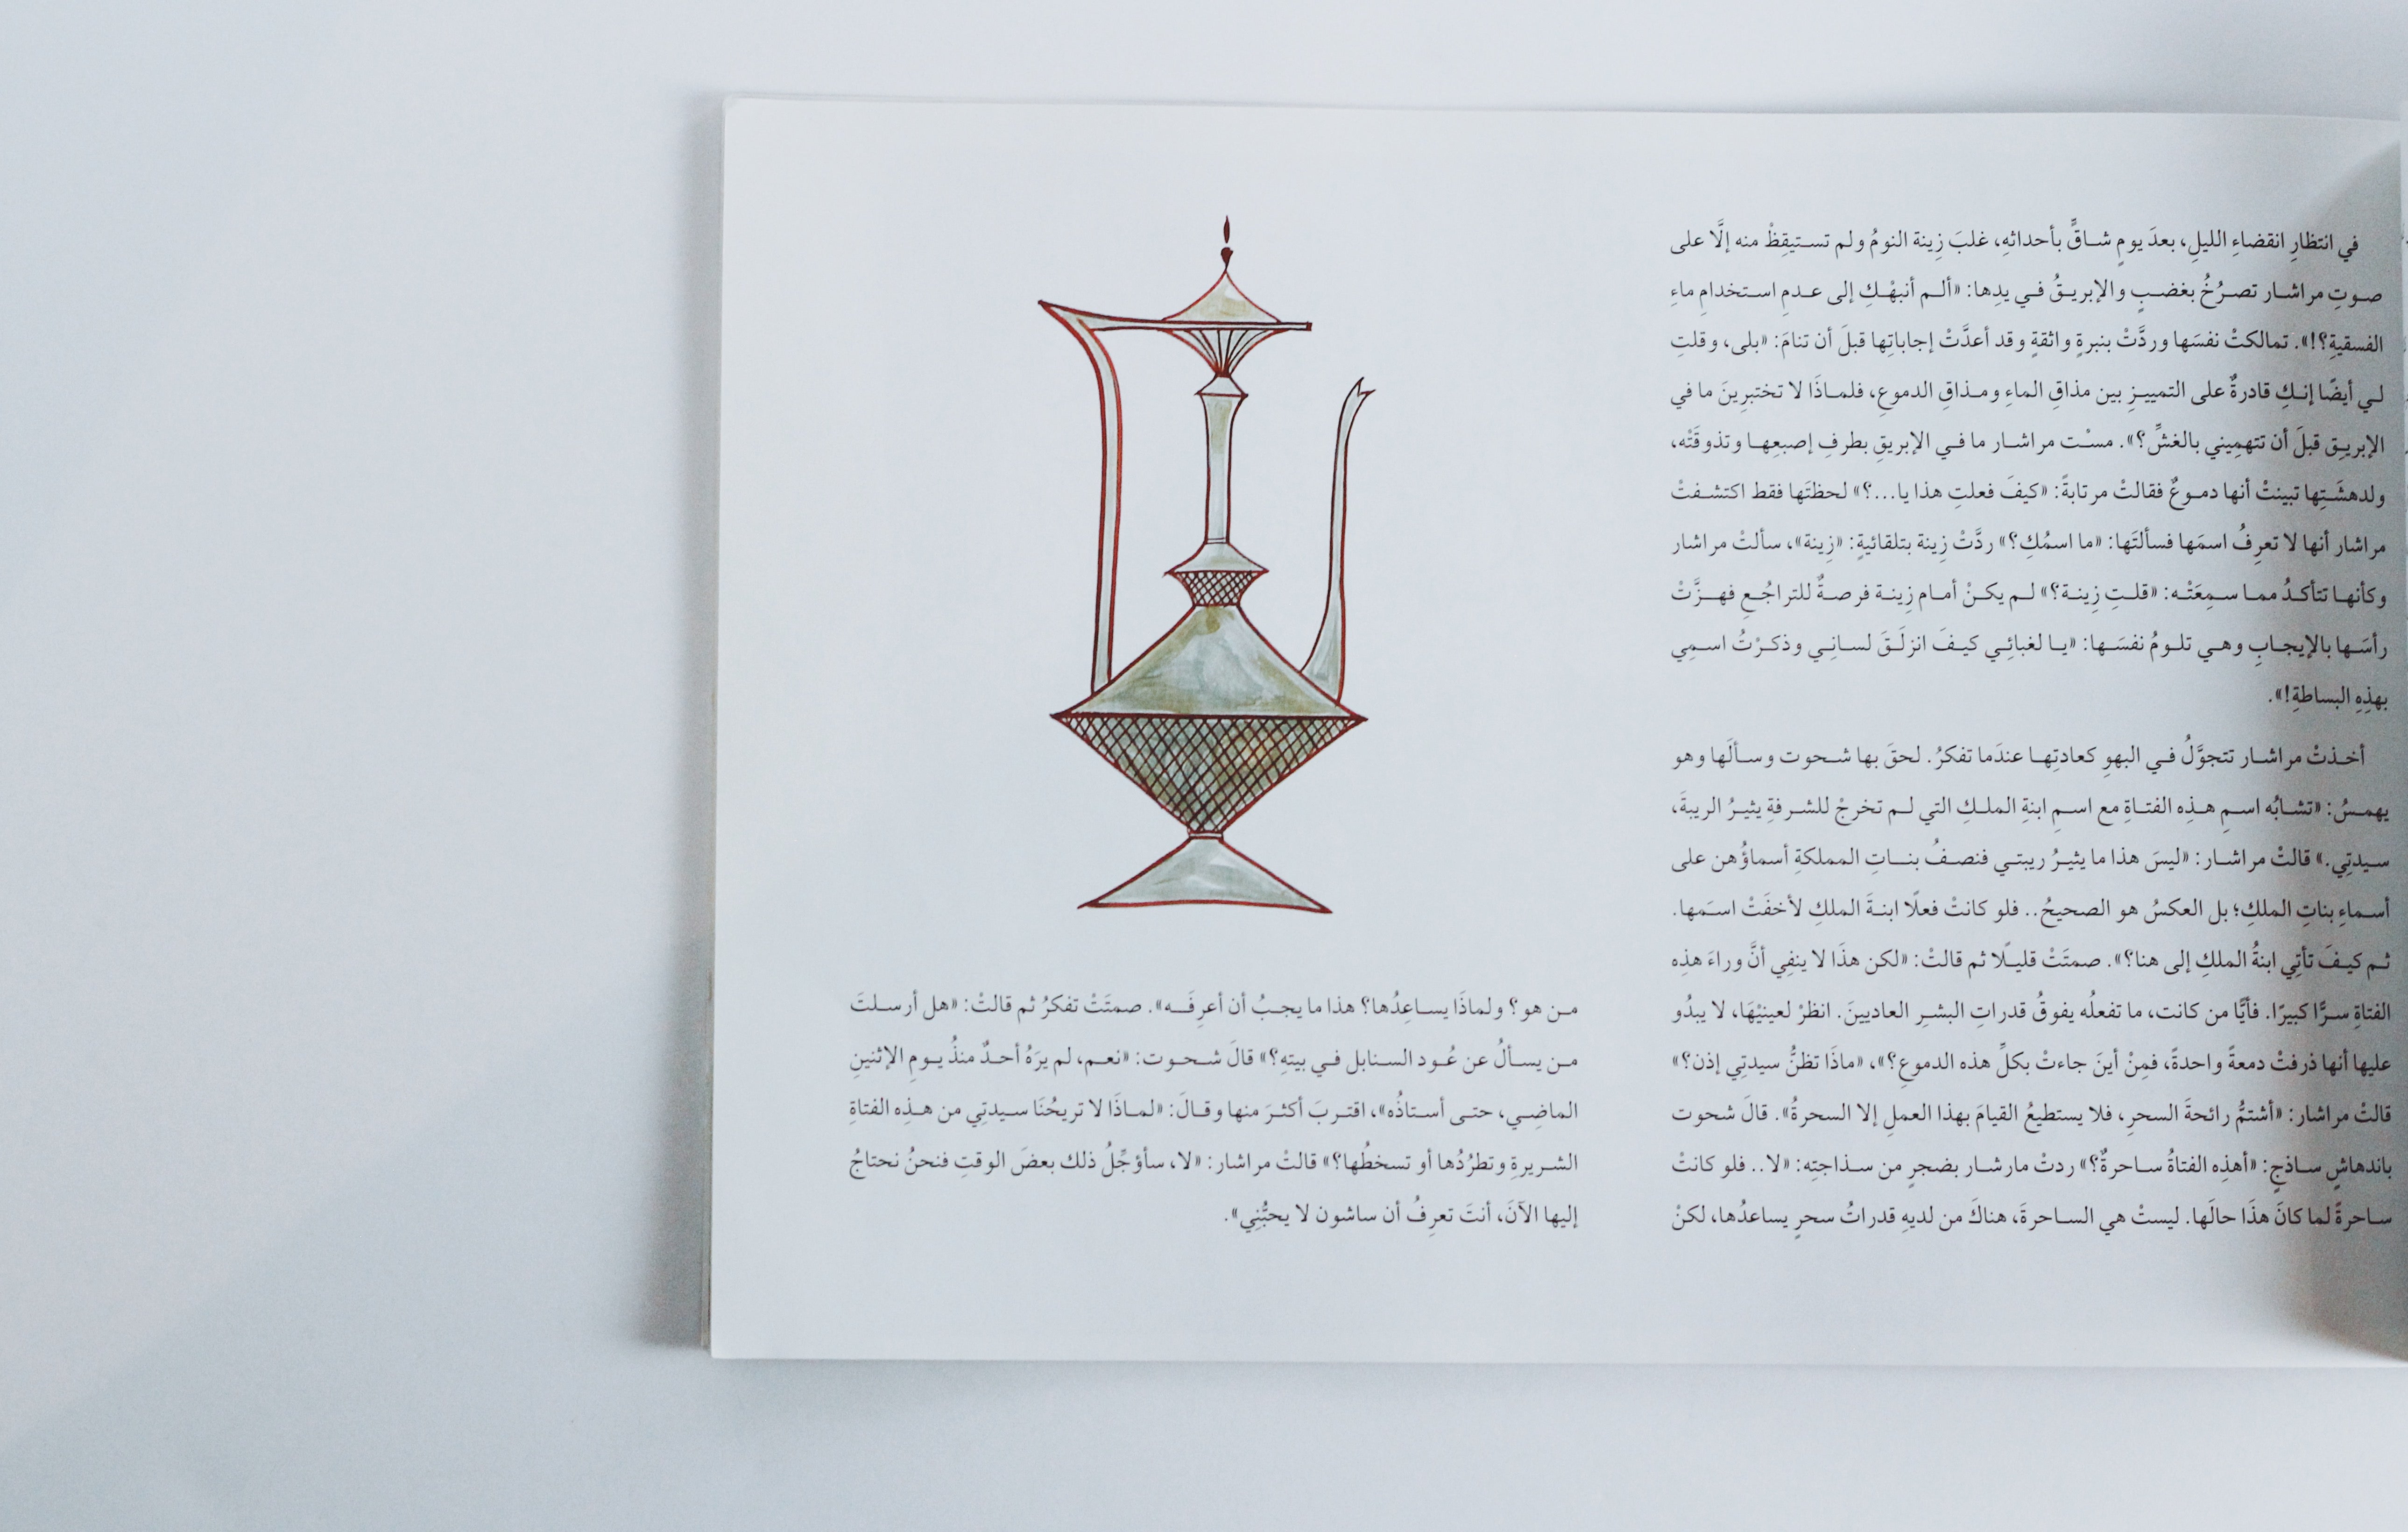 في انتظارِ انقضاءِ الليلِ، بعدَ يومٍ شاقٍّ بأحداثهِ، غلبَ زِينة النومُ ولم تستيقِظْ منه إلَّا على
صوتِ مراشار تصرُخُ بغضبٍ والإبريقُ في يدِها: «ألم أنبهْكِ إلى عدمِ استخدامِ ماءِ
الفسقيةِ؟!». تمالكتْ نفسَها وردَّتْ بنبرةٍ واثقةٍ وقد أعدَّتْ إجاباتِها قبلَ أن تنامَ: «بلى، وقلتِ
لي أيضًا إنكِ قادرةٌ على التمييزِ بين مذاقِ الماءِ ومذاقِ الدموعِ، فلماذَا لا تختبرِينَ ما في
الإبريقِ قبلَ أن تتهمِيني بالغشِّ؟». مسْت مراشار ما في الإبريقِ بطرفِ إصبعِها وتذوقَتْه،
ولدهشَتِها تبينتْ أنها دموعٌ فقالتْ مرتابةً: «كيفَ فعلتِ هذا يا...؟» لحظتَها فقط اكتشفتْ
مراشار أنها لا تعرِفُ اسمَها فسألتَها: «ما اسمُكِ؟» ردَّتْ زِينة بتلقائيةٍ: «زِينة»، سألتْ مراشار
وكأنها تتأكدُ مما سمِعَتْه: «قلتِ زِينة؟» لم يكنْ أمام زِينة فرصةٌ للتراجُعِ فهزَّتْ
رأسَها بالإيجابِ وهي تلومُ نفسَها: «يا لغبائِي كيفَ انزلَقَ لسانِي وذكرْتُ اسمِي
بهذِهِ البساطةِ!».
أخذتْ مراشار تتجوَّلُ في البهوِ كعادتِها عندَما تفكرُ. لحقَ بها شحوت وسألَها وهو
يهمسُ: «تشابُه اسمِ هذِه الفتاةِ مع اسمِ ابنةِ الملكِ التي لم تخرجْ للشرفةِ يثيرُ الريبةَ،
سيدتِي.» قالتْ مراشار: «ليسَ هذا ما يثيرُ ريبتي فنصفُ بناتِ المملكةِ أسماؤُهن على
أسماءِ بناتِ الملكِ؛ بل العكسُ هو الصحيحُ.. فلو كانتْ فعلًا ابنةَ الملكِ لأخفَتْ اسمَها.
ثم كيفَ تأتِي ابنةُ الملكِ إلى هنا؟». صمتَتْ قليلًا ثم قالتْ: «لكن هذَا لا ينفِي أنَّ وراءَ هذِه
الفتاةِ سرًّا كبيرًا. فأيًّا من كانت، ما تفعلُه يفوقُ قدراتِ البشرِ العاديينَ. انظرْ لعينيْهَا، لا يبدُو
عليها أنها ذرفتْ دمعةً واحدةً، فمِنْ أينَ جاءتْ بكلِّ هذه الدموعِ؟»، «ماذَا تظنُّ سيدتِي إذن؟»
قالتْ مراشار: «أشتمُّ رائحةَ السحرِ، فلا يستطيعُ القيامَ بهذا العملِ إلا السحرةُ». قالَ شحوت
باندهاشٍ ساذجٍ: «أهذِه الفتاةُ ساحرةٌ؟» ردتْ مارشار بضجرٍ من سذاجتِه: «لا.. فلو كانتْ
ساحرةً لما كانَ هذَا حالَها. ليستْ هي الساحرةَ، هناكَ من لديهِ قدراتُ سحرٍ يساعدُها، لكنْ
من هو؟ ولماذَا يساعِدُها؟ هذا ما يجبُ أن أعرِفَه». صمتَتْ تفكرُ ثم قالتْ: «هل أرسلتَ
من يسألُ عن عُود السنابل في بيتهِ؟» قالَ شحوت: «نعم، لم يرَهُ أحدٌ منذُ يومِ الإثنينِ
الماضِي، حتى أستاذُه»، اقتربَ أكثرَ منها وقالَ: «لماذَا لا تريحُنَا سيدتِي من هذِه الفتاةِ
الشريرةِ وتطرُدُها أو تسخطُها؟» قالتْ مراشار: «لا، سأؤجِّلُ ذلك بعضَ الوقتِ فنحنُ نحتاجُ
إليها الآنَ، أنتَ تعرِفُ أن ساشون لا يحبُّنِي».